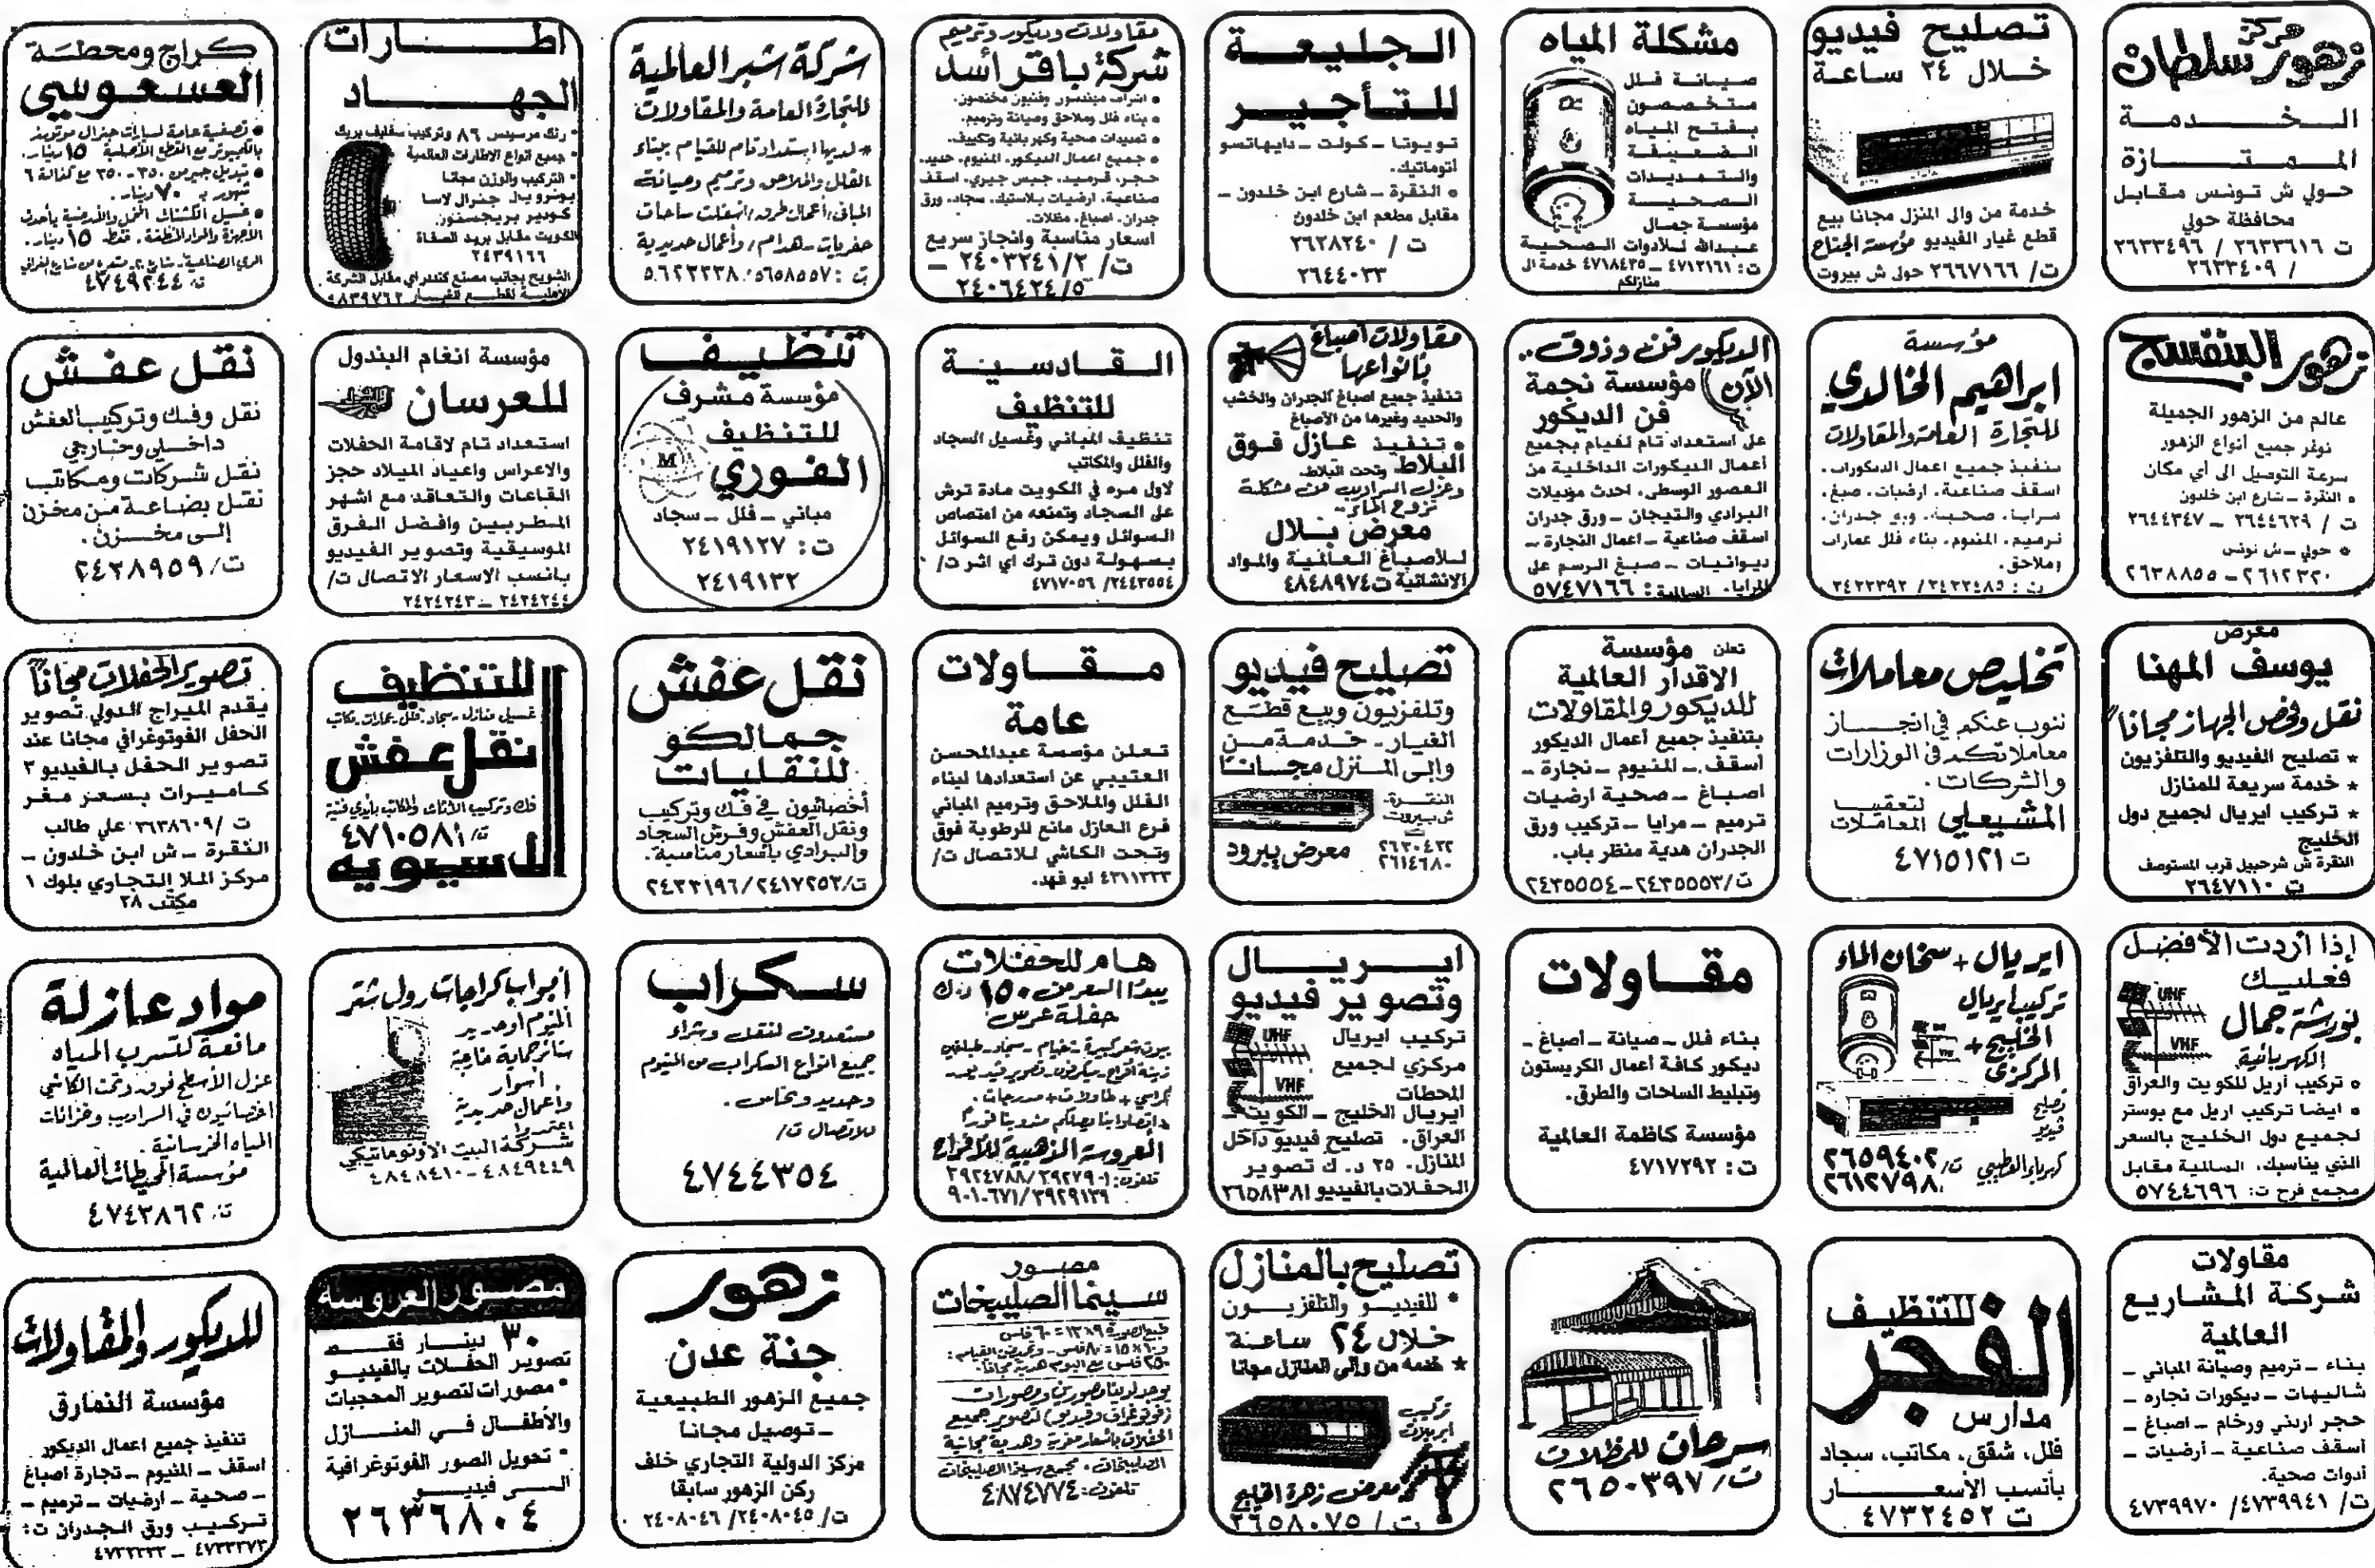 مركز
زهور سلطان
الـخـدمـة
المـمـتـازة
حولي ش تونس مقابل
محافظة حولي
ت ٢٦٣٣٦١٦ / ٢٦٣٣٤٩٦
/ ٢٦٣٣٤٠٩
تصليح فيديو
خلال ٢٤ ساعة
خدمة من والى المنزل مجانا بيع
قطع غيار الفيديو مؤسسة الجناح
ت/ ٢٦٦٧١٦٦ حولي ش بيروت
مشكلة المياه
صيانة فلل
متخصصون
بفتح المياه
الضعيفة
والتمديدات
الصحية
مؤسسة جمال
عبدالله للأدوات الصحية
ت: ٤٧١٢١٦١ – ٤٧١٨٤٣٥ خدمة ال
منازلكم
الجليعة
للتأجير
تويوتا – كولت – دايهاتسو
أتوماتيك.
• النقرة – شارع ابن خلدون –
مقابل مطعم ابن خلدون
ت / ٢٦٢٨٢٤٠
٢٦٤٤٠٣٣
مقاولات وديكور وترميم
شركة باقر أسد
• اشراف مهندسون وفنيون مختصون.
• بناء فلل وملاحق وصيانة وترميم.
• تمديدات صحية وكهربائية وتكييف.
• جميع اعمال الديكور. المنيوم. حديد.
حجر. قرميد. جبس جيري. اسقف
صناعية. ارضيات بلاستيك. سجاد. ورق
جدران. اصباغ. مظلات.
اسعار مناسبة وانجاز سريع
ت/ ٢٤٠٣٢٤١/٢ –
٢٤٠٦٤٢٤/٥
شركة شبر العالمية
للتجارة العامة والمقاولات
* لديها استعداد تام للقيام ببناء
الفلل والملاحق وترميم وصيانة
المباني/ أعمال طرق/ اسفلت ساحات
حفريات - هدام/ وأعمال حديدية
ت: ٥٦٥٨٥٥٧ / ٥٦٢٣٣٣٨
اطارات
الجهاد
• رنك مرسيدس ٨٦ وتركيب سفايف بريك
• جميع انواع الاطارات العالمية
• التركيب والوزن مجانا
يونرويال جنرال لاسا
كوديير بريجستون
الكويت مقابل بريد الصفاة
٢٤٣٩١٦٦
الشويخ بجانب مصنع كندراي مقابل الشركة
الأهلية لقطع الغيار ٩٨٣٩٧٦٢
كراج ومحطة
العسعوسي
• تصفية عامة لسيارات جنرال موتورز
بالكمبيوتر مع القطع الأصلية ١٥ دينار.
• تبديل جير من ٢٥٠ - ٣٥٠ مع كفالة ٦
شهور بـ ٧٠ دينار.
الأجهزة والمواد المنظفة. فقط ١٥ دينار.
ت: ٤٧٤٩٢٤٤
زهور البنفسج
عالم من الزهور الجميلة
نوفر جميع أنواع الزهور
سرعة التوصيل الى أي مكان
• النقرة – شارع ابن خلدون
ت / ٢٦٤٤٦٢٩ – ٢٦٤٤٣٤٧
* حولي – ش تونس
٢٦١٢٣٢٠ – ٢٦٣٨٨٥٥
مؤسسة
ابراهيم الخالدي
للتجارة العامة والمقاولات
تنفيذ جميع اعمال الديكورات.
اسقف صناعية. ارضيات. صبغ.
مرايا. صحية. ورق جدران.
ترميم. المنيوم. بناء فلل عمارات
وملاحق.
ت: ٢٤٢٢٤٨٥ / ٢٤٢٢٣٩٢
الديكور فن وذوق..
الآن مؤسسة نجمة
فن الديكور
على استعداد تام لقيام بجميع
أعمال الديكورات الداخلية من
العصور الوسطى. احدث موديلات
البرادي والتيجان – ورق جدران
اسقف صناعية – اعمال النجارة –
ديوانيات – صبغ الرسم على
المرايا. السالمية: ٥٧٤٧١٦٦
مقاولات أصباغ
بأنواعها
تنفيذ جميع اصباغ الجدران والخشب
والحديد وغيرها من الأصباغ
• تنفيذ عازل فوق
البلاط وتحت البلاط.
وعزل السراديب من مشكلة
نزوح الماء..
معرض بلال
للأصباغ العالمية والمواد
الانشائية ت ٤٨٤٨٩٧٤
القادسية
للتنظيف
تنظيف المباني وغسيل السجاد
والفلل والمكاتب
لاول مره في الكويت مادة ترش
على السجاد وتمنعه من امتصاص
السوائل ويمكن رفع السوائل
بسهولة دون ترك اي اثر ت/
٢٤٤٣٥٥٤/ ٤٧١٧٠٥٦
تنظيف
مؤسسة مشرف
للتنظيف
M
الفوري
مباني – فلل – سجاد
ت: ٢٤١٩١٢٧
٢٤١٩١٣٢
مؤسسة انغام البندول
للعرسان
استعداد تام لاقامة الحفلات
والاعراس واعياد الميلاد حجز
القاعات والتعاقد مع اشهر
المطربين وافضل الفرق
الموسيقية وتصوير الفيديو
بانسب الاسعار الاتصال ت/
٢٤٢٤٢٤٤ – ٢٤٢٤٢٤٣
نقل عفش
نقل وفك وتركيب العفش
داخلي وخارجي
نقل شركات ومكاتب
نقل بضاعة من مخزن
إلى مخزن.
ت/ ٢٤٣٨٩٥٩
معرض
يوسف المهنا
نقل وفحص الجهاز مجاناً
* تصليح الفيديو والتلفزيون
* خدمة سريعة للمنازل
* تركيب ايريال لجميع دول
الخليج
النقرة ش شرحبيل قرب المستوصف
ت ٢٦٤٧١١٠
تخليص معاملات
ننوب عنكم في انجاز
معاملاتكم في الوزارات
والشركات.
المشيعلي لتعقيب المعاملات
ت ٤٧١٥١٢١
تعلن مؤسسة
الاقدار العالمية
للديكور والمقاولات
بتنفيذ جميع أعمال الديكور
أسقف – المنيوم – نجارة –
اصباغ – صحية ارضيات
ترميم – مرايا – تركيب ورق
الجدران هدية منظر باب.
ت/ ٢٤٣٥٥٥٣ – ٢٤٣٥٥٥٤
تصليح فيديو
وتلفزيون وبيع قطع
الغيار – خدمة من
والى المنزل مجاناً
النقرة.
ش بيروت
ت
٢٦٣٠٤٢٢
٢٦١٤٦٨٠
معرض يبرود
مقاولات
عامة
تعلن مؤسسة عبدالمحسن
العتيبي عن استعدادها لبناء
الفلل والملاحق وترميم المباني
فرع العازل مانع للرطوبة فوق
وتحت الكاشي للاتصال ت/
٤٣١١٣٣٣ ابو فهد.
نقل عفش
جمالكو
للنقليات
أخصائيون في فك وتركيب
ونقل العفش وفرش السجاد
والبرادي بأسعار مناسبة.
ت/ ٢٤١٧٢٥٣ / ٢٤٣٣١٩٦
للتنظيف
غسيل منازل - سجاد - فلل - عمارات - مكاتب
نقل عفش
فك وتركيب الأثاث والمكاتب بأيدي فنية
ت/ ٤٧١٠٥٨١
الآسيويه
تصوير الحفلات مجاناً
يقدم الميراج الدولي تصوير
الحفل الفوتوغرافي مجانا عند
تصوير الحفل بالفيديو ٣
كاميرات بسعر مغر
ت / ٣٦٣٨٦٠٩ علي طالب
النقرة – ش ابن خلدون –
مركز الملا التجاري بلوك ١
مكتب ٢٨
إذا أردت الأفضل
فعليك
بورشة جمال
الكهربائية
UHF
VHF
• تركيب أريل للكويت والعراق
• ايضا تركيب اريل مع بوستر
لجميع دول الخليج بالسعر
الذي يناسبك. السالمية مقابل
مجمع فرح ت: ٥٧٤٤٦٩٦
ايريال + سخان الماء
تركيب ايريال
الخليج +
المركزي
تصليح
فيديو
كهرباء القطبي ت/ ٢٦٥٩٤٠٢
٢٦١٢٧٩٨
مقاولات
بناء فلل – صيانة – أصباغ –
ديكور كافة أعمال الكريستون
وتبليط الساحات والطرق.
مؤسسة كاظمة العالمية
ت: ٤٧١٧٢٩٢
ايريال
وتصوير فيديو
تركيب ايريال
مركزي لجميع
المحطات
UHF
VHF
ايريال الخليج – الكويت –
العراق. تصليح فيديو داخل
المنازل. ٢٥ د.ك تصوير
الحفلات بالفيديو ٢٦٥٨٣٨١
هام للحفلات
يبدأ العرض ١٥٠ د.ك
حفلة عرس
كراسي + طاولات + مدرجات.
العروسة الذهبية للأفراح
تلفون: ٣٩٢٧٩٠١ / ٣٩٢٤٧٨٨
٩٠١٠٦٧١/٣٩٢٩١٣٩
سكراب
مستعدون لنقل وشراء
جميع انواع السكراب من المنيوم
وحديد ونحاس.
للاتصال ت/
٤٧٤٤٣٥٤
أبواب كراجات رول شتر
المنيوم أو حديد
ستائر حماية خارجية
أسوار
وأعمال حديدية
اعتمدوا
شركة البيت الأوتوماتيكي
٤٨٤٩٤٤٩ - ٤٨٤٨٤١٠
مواد عازلة
مانعة لتسرب المياه
عزل الأسطح فوق وتحت الكاشي
اخصائيون في السراديب وخزانات
المياه الخرسانية.
مؤسسة المحيطات العالمية
ت: ٤٧٤٣٨٦٢
مقاولات
شركة المشاريع
العالمية
بناء – ترميم وصيانة المباني –
شاليهات – ديكورات نجاره –
حجر اردني ورخام – اصباغ –
أسقف صناعية – أرضيات –
أدوات صحية.
ت/ ٤٧٣٩٩٤١/ ٤٧٣٩٩٧٠
للتنظيف
الفجر
مدارس
فلل، شقق، مكاتب، سجاد
بأنسب الأسعار
ت ٤٧٣٢٤٥٢
سرحان للمظلات
ت/ ٢٦٥٠٣٩٧
تصليح بالمنازل
* للفيديو والتلفزيون
خلال ٢٤ ساعة
* خدمه من والى المنازل مجانا
تركيب
ايريلات
معرض زهرة الخليج
ت / ٢٦٥٨٠٧٥
مصور
سينما الصليبخات
طبع الصورة ٩×١٣ = ٦٠ فلس
و ١٠×١٥ = ٨٠ فلس - وتحميض الفيلم:
٢٥٠ فلس مع البوم هدية مجاناً.
يوجد لدينا مصورين ومصورات
(فوتوغراف وفيديو) لتصوير جميع
الحفلات بأسعار مغرية وهدية مجانية
الصليبخات. مجمع سينما الصليبخات
تلفون: ٤٨٧٤٧٧٤
زهور
جنة عدن
جميع الزهور الطبيعية
– توصيل مجانا
مركز الدولية التجاري خلف
ركن الزهور سابقا
ت/ ٢٤٠٨٠٤٥/ ٢٤٠٨٠٤٦
مصور العروسة
٣٠ دينار فقط
تصوير الحفلات بالفيديو
* مصورات لتصوير المحجبات
والأطفال في المنازل
* تحويل الصور الفوتوغرافية
الى فيديو
٢٦٣٦٨٠٤
للديكور والمقاولات
مؤسسة النمارق
تنفيذ جميع اعمال الديكور
اسقف – المنيوم – تجارة اصباغ
– صحية – ارضيات – ترميم –
تركيب ورق الجدران ت:
٤٧٣٣٣٧٣ – ٤٧٣٣٣٣٣